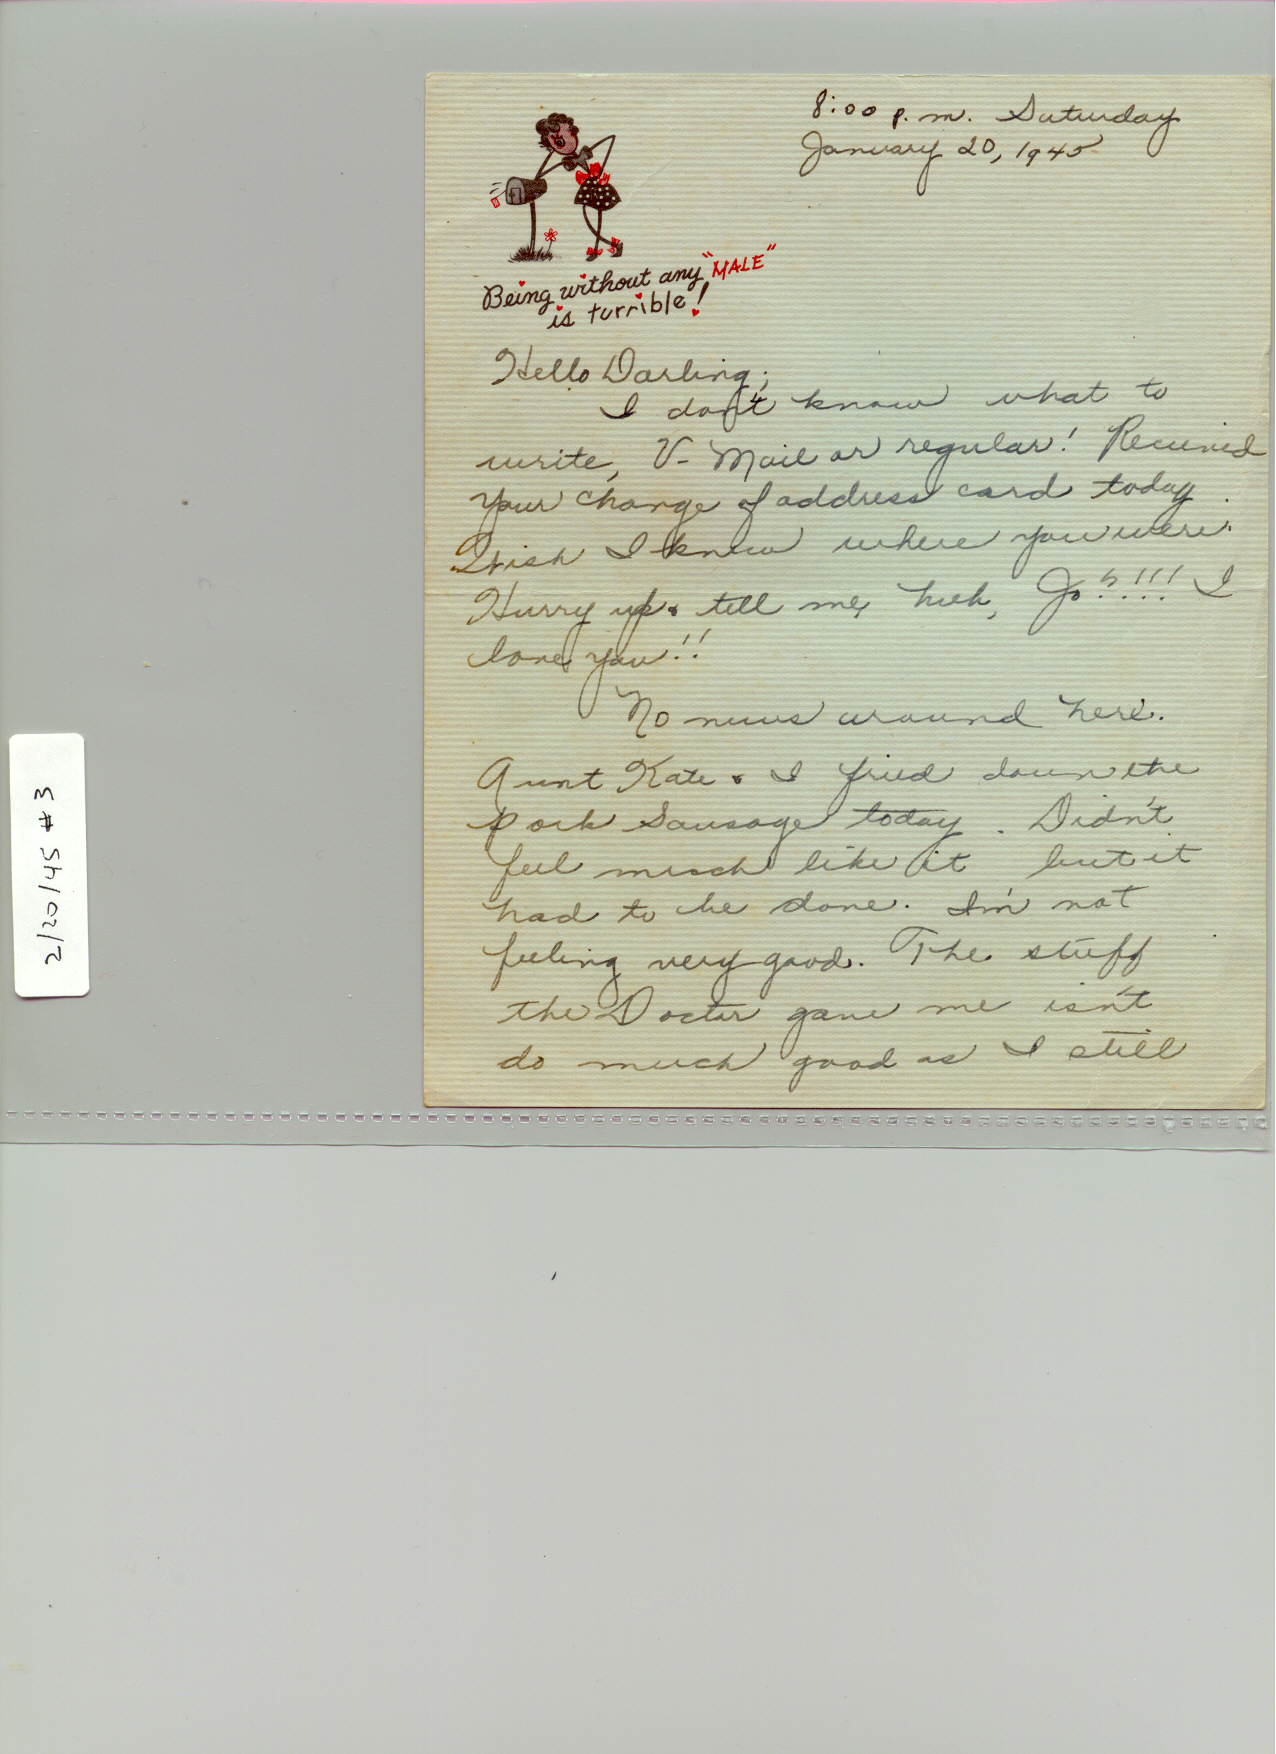 8:00 p.m. Saturday
January 20, 1945
Being without any "MALE"
is turrible!
Hello Darling;
I don't know what to
write, V-Mail or regular! Received
your change of address card today.
Wish I knew where you were.
Hurry up & tell me, huh, Jo?!!! I
love you!!
No news around here.
Aunt Kate & I fried down the
pork sausage today. Didn't
feel much like it but it
had to be done. I'm not
feeling very good. The stuff
the Doctor gave me isn't
do much good as I still
2/20/45 #3